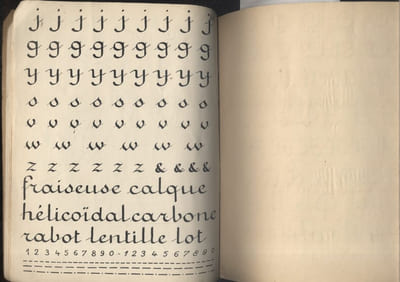 j j j j j j j j j
g g g g g g g g g
y y y y y y y y y
s s s s s s s s
v v v v v v v v
w w w w w
z z z z z z & & & &
fraiseuse calque
hélicoïdal carbone
rabot lentille lot
1 2 3 4 5 6 7 8 9 0 - 1 2 3 4 5 6 7 8 9 0